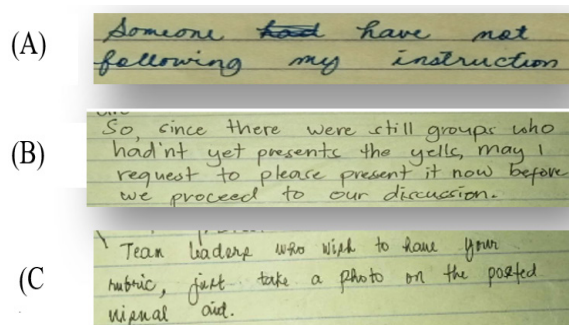 (A)
Someone had have not
following my instruction
(B)
So, since there were still groups who
had'nt yet presents the yells, may I
request to please present it now before
we proceed to our discussion.
(C
Team leaders who wish to have your
rubric, just take a photo on the posted
visual aid.